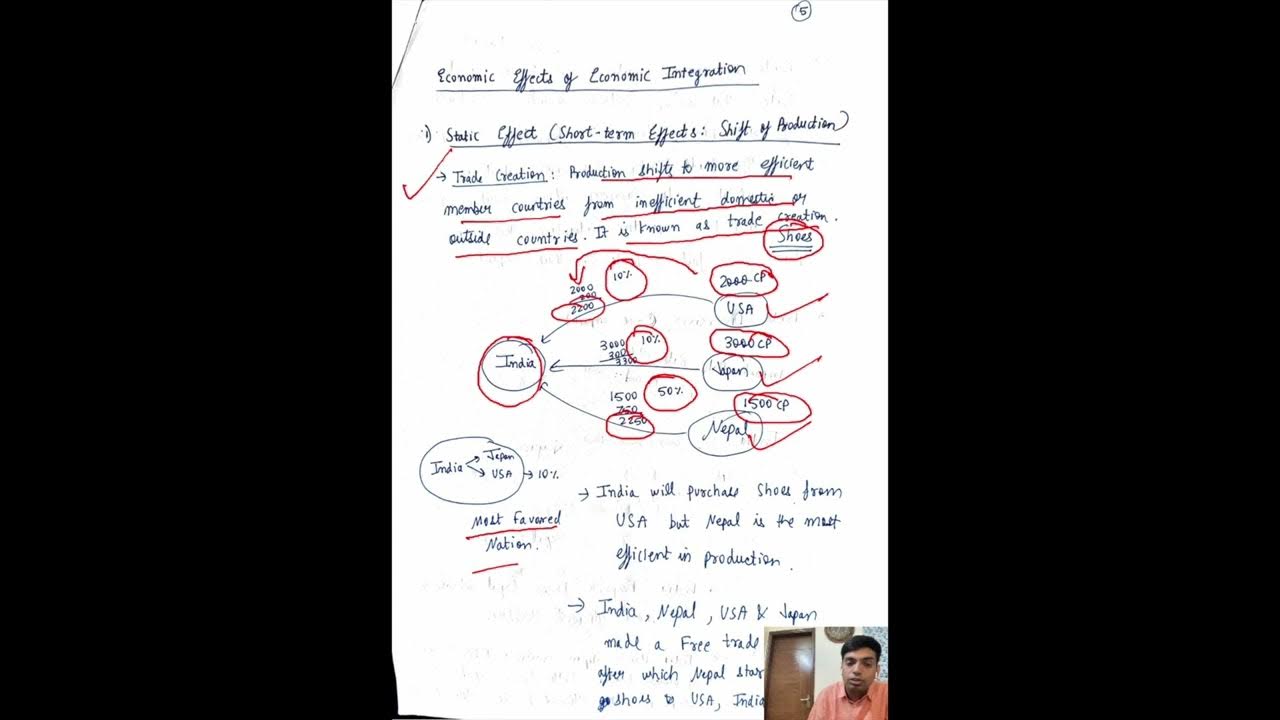 5
Economic Effects of Economic Integration
i) Static Effect (Short-term Effects: Shift of Production)
→ Trade Creation: Production shifts to more efficient
member countries from inefficient domestic or
outside countries. It is known as trade creation.
Shoes
10%
2000 CP
2000
200
2200
USA
10%
3000 CP
3000
300
3300
India
Japan
50%
1500 CP
1500
750
2250
Nepal
India
Japan
USA → 10%
→ India will purchase shoes from
USA but Nepal is the most
efficient in production.
Most Favored
Nation.
→ India, Nepal, USA & Japan
made a Free trade
after which Nepal star
shoes to USA, India